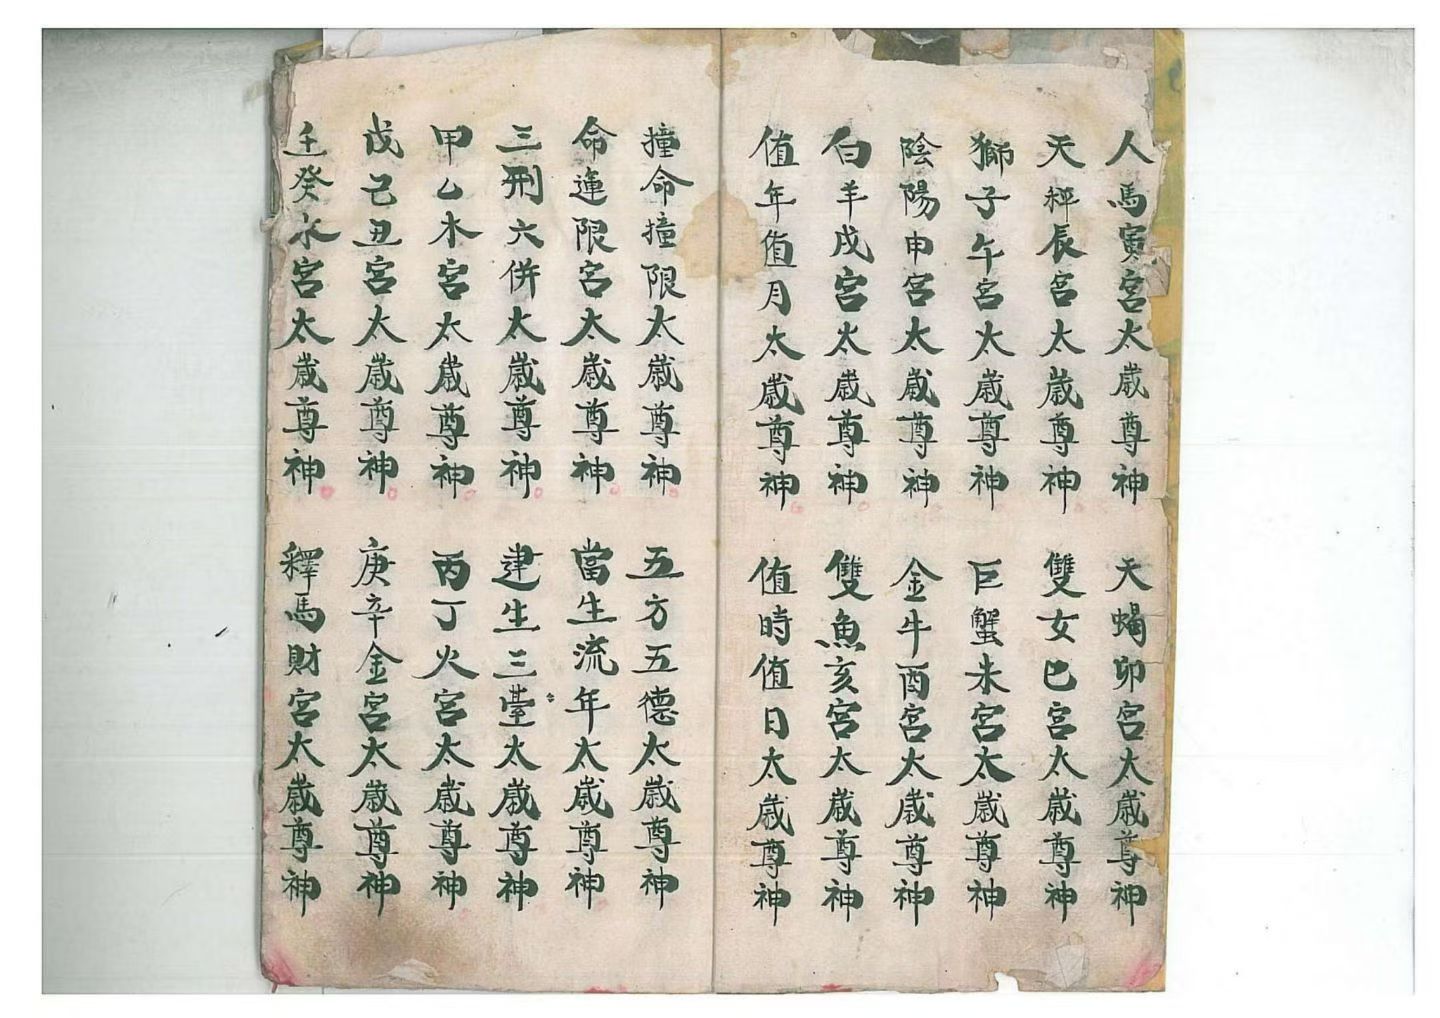 人馬寅宮太歲尊神
天蝎卯宮太歲尊神
天秤辰宮太歲尊神
雙女巳宮太歲尊神
獅子午宮太歲尊神
巨蟹未宮太歲尊神
陰陽申宮太歲尊神
金牛酉宮太歲尊神
白羊戌宮太歲尊神
雙魚亥宮太歲尊神
值年值月太歲尊神
值時值日太歲尊神
撞命撞限太歲尊神
五方五德太歲尊神
命運限宮太歲尊神
當生流年太歲尊神
三刑六併太歲尊神
建生三臺太歲尊神
甲乙木宮太歲尊神
丙丁火宮太歲尊神
戊己丑宮太歲尊神
庚辛金宮太歲尊神
壬癸水宮太歲尊神
釋馬財宮太歲尊神